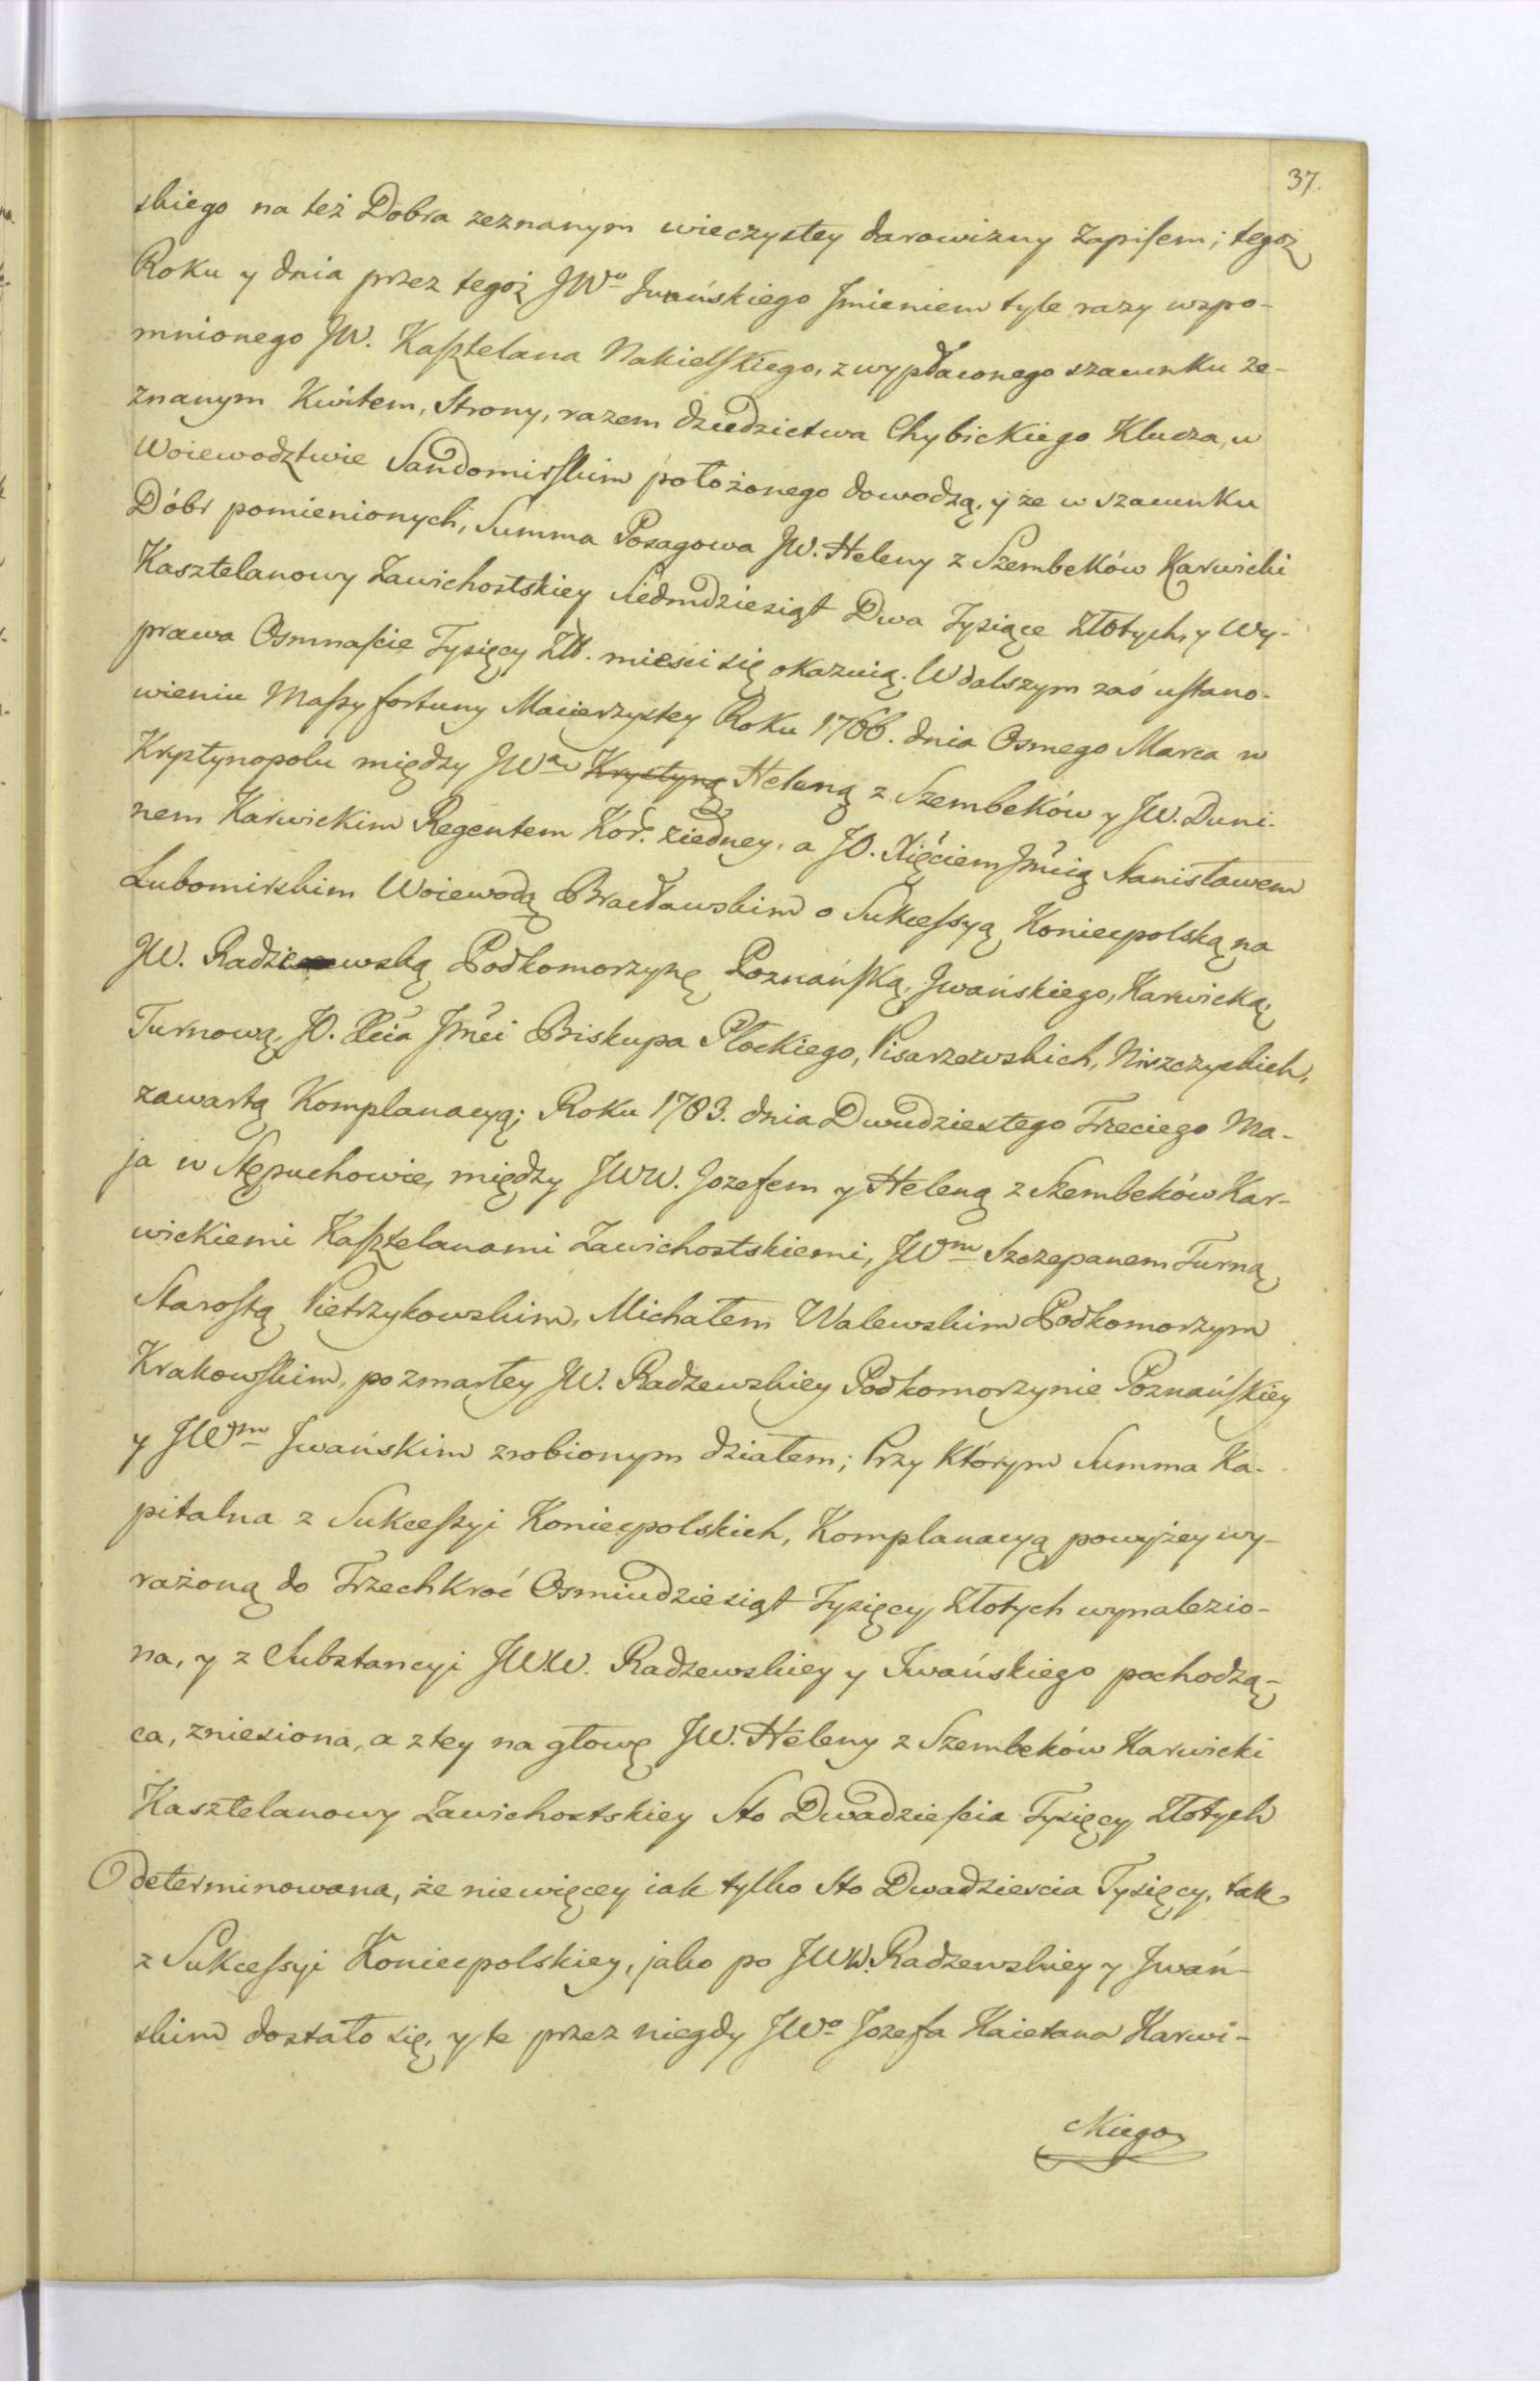 37.
skiego na też Dobra zeznanym wieczystey darowizny Zapisem; tegoż
Roku y dnia przez tegoż JWo Jwańskiego Jmieniem tyle razy wspo-
mnionego JW. Kasztelana Nakielskiego, z wypłaconego szacunku ze-
znanym Kwitem, Strony, razem dziedzictwa Chybickiego Klucza, w
Woiewodztwie Sandomirskim położonego dowodzą, y że w szacunku
Dóbr pomienionych, Summa Posagowa JW. Heleny z Szembeków Karwicki
Kasztelanowy Zawichostskiey Siedmdziesiąt Dwa Tysiące Złotych, y Wy-
prawa Osmnaście Tysięcy Złł. mieści się okazuią. W dalszym zaś ustano-
wieniu Massy fortuny Macierzystey Roku 1766. dnia Osmego Marca w
Krystynopolu między JWą Krystyną Heleną z Szembeków y JW. Duni-
nem Karwickim Regentem Kor. ziedney, a JO. Xięciem Jmcią Stanisławem
Lubomirskim Woiewodą Bracławskim o Sukcessyą Koniecpolską na
JW. Radzewską Podkomorzynę Poznańską, Jwańskiego, Karwicką,
Turnową, JO. Xcia Jmci Biskupa Płockiego, Pisarzewskich, Niszczyckich,
zawartą Komplanacyą; Roku 1783. dnia Dwudziestego Trzeciego Ma-
ja w Stępuchowie, między JWW. Jozefem y Heleną z Szembeków Kar-
wickiemi Kasztelanami Zawichostskiemi, JWm Szczepanem Turną,
Starostą Pietrzykowskim, Michałem Walewskim Podkomorzym
Krakowskim, po zmarłey JW. Radzewskiey Podkomorzynie Poznańskiey
y JWm Jwańskim zrobionym działem; Przy Którym Summa Ka-
pitalna z Sukcessyi Koniecpolskich, Komplanacyą powyżey wy-
rażoną do Trzechkroć Osmiudziesiąt Tysięcy Złotych wynalezio-
na, y z Substancyi JWW. Radzewskiey y Jwańskiego pochodzą-
ca, zniesiona, a z tey na głowę JW. Heleny z Szembeków Karwicki
Kasztelanowy Zawichostskiey Sto Dwadzieścia Tysięcy Złotych
determinowana, że niewięcey iak tylko Sto Dwadziescia Tysięcy, tak
z Sukcessyi Koniecpolskiey, jako po JWW. Radzewskiey y Jwań-
skim dostało się, y te przez niegdy JWo Jozefa Kaietana Karwi-
ckiego